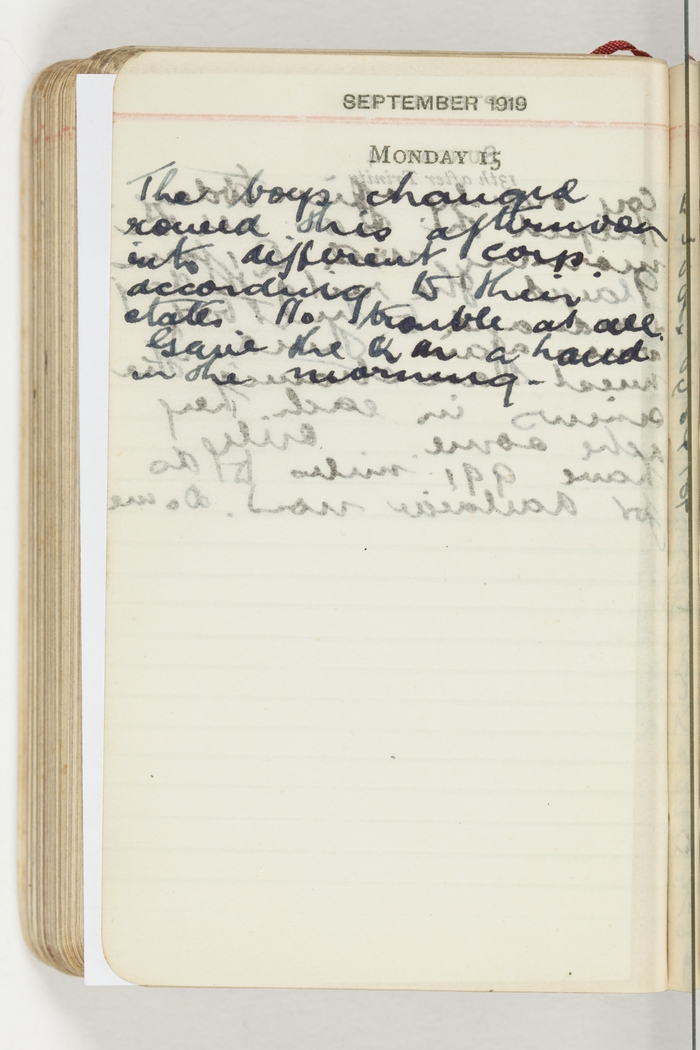 SEPTEMBER 1919
MONDAY 15
The boys changed
round this afternoon
into different corps
according to their
states No trouble at all.
Gave the a hand
in the morning.